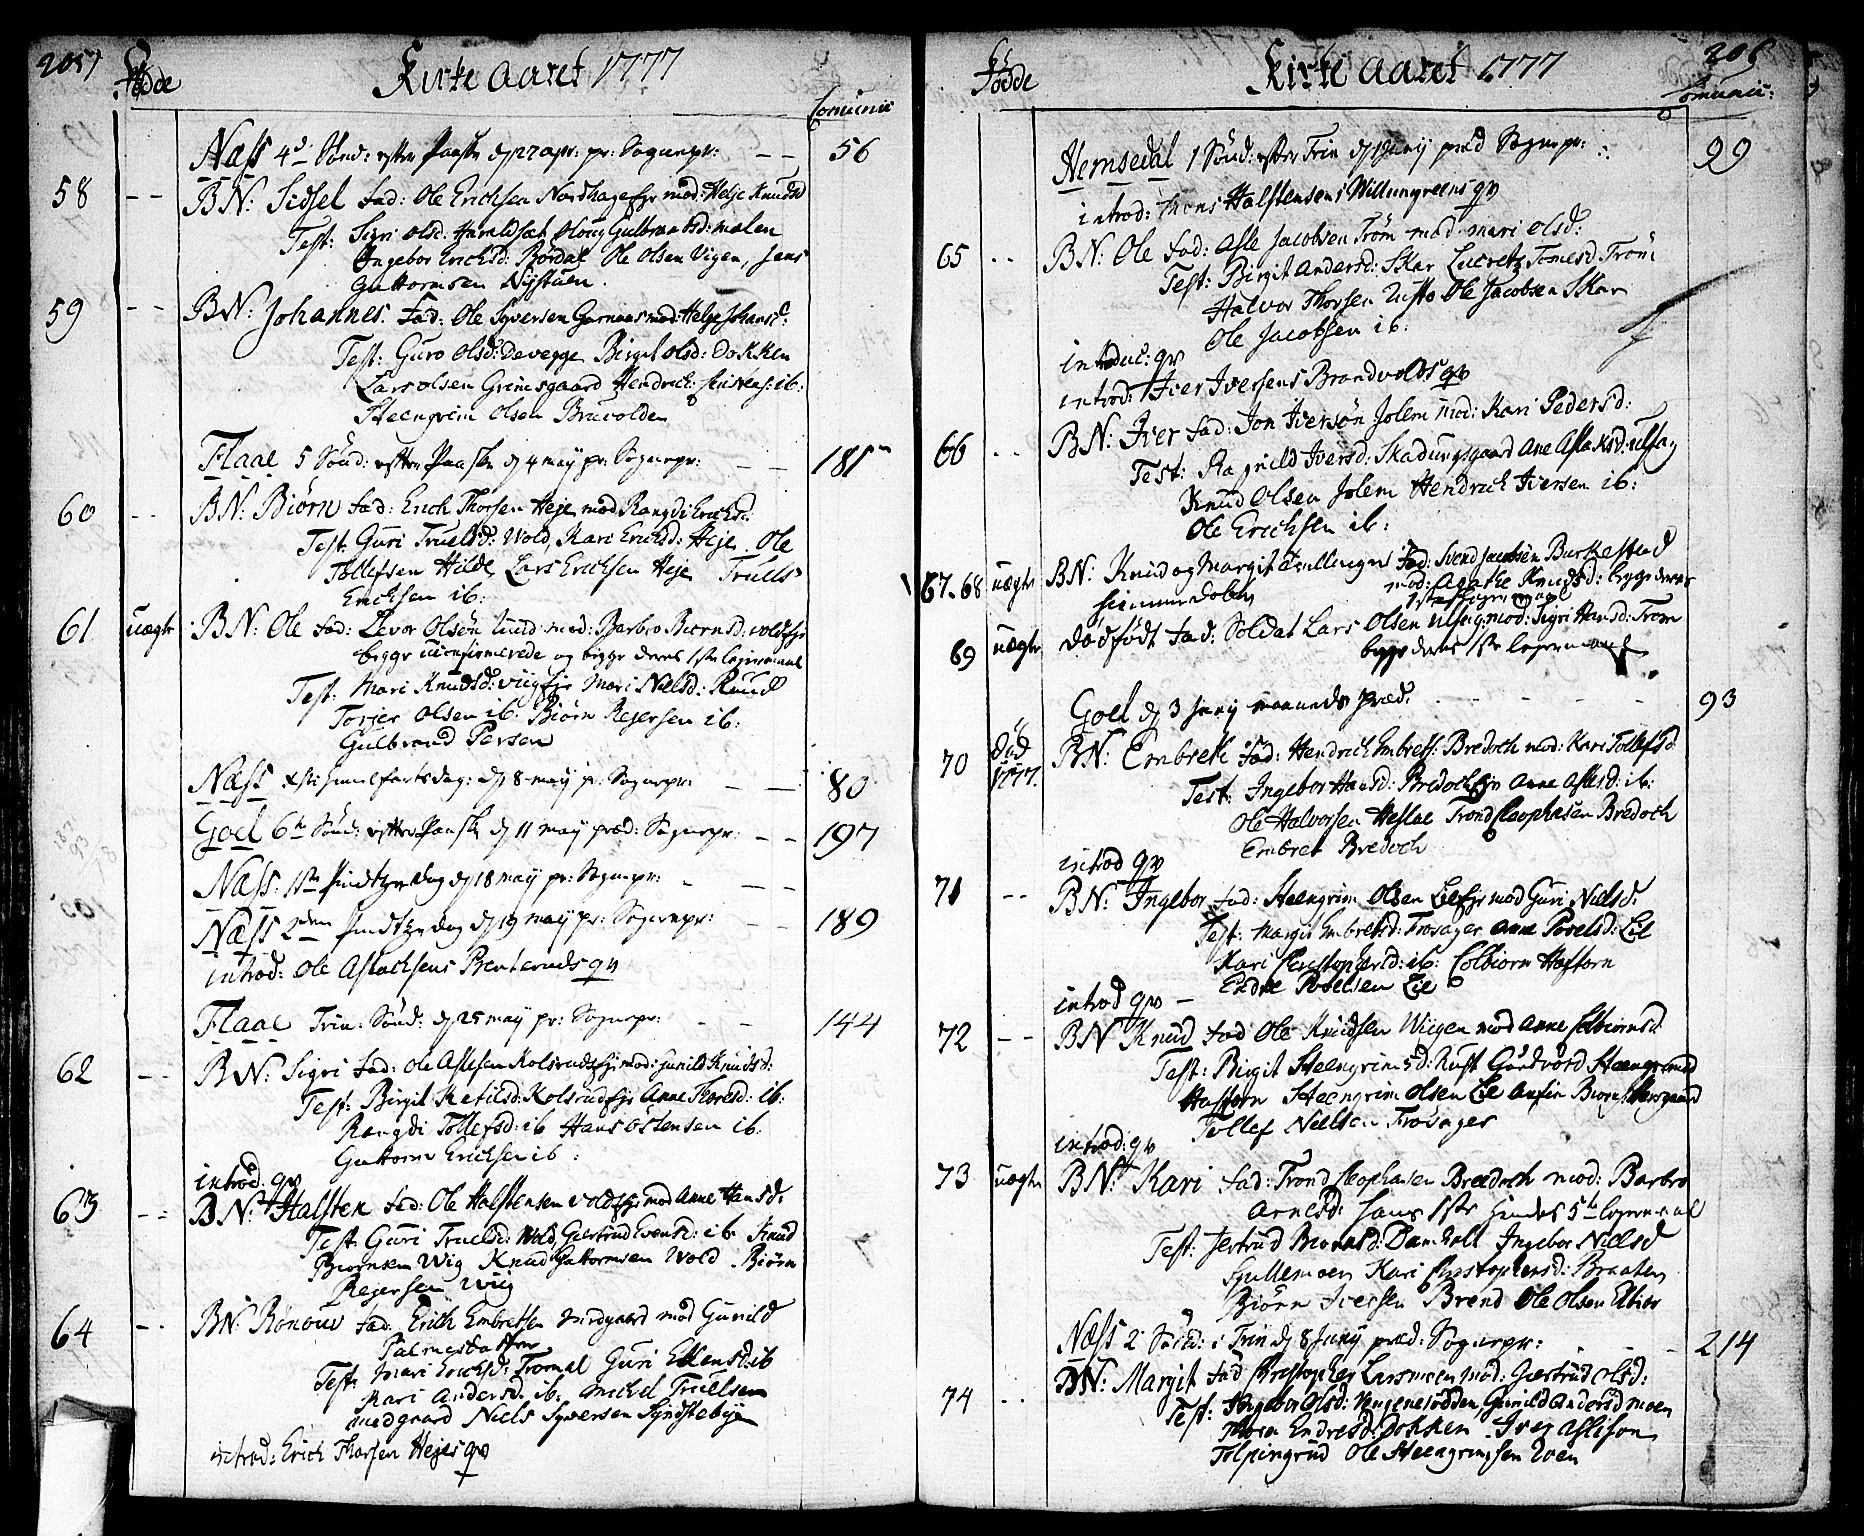 205
Fødde
Kirke Aaret 1777
Comunic
Næss 4de Sönd: efter Paaske d 27 apr: pr: Sognepr: - - 56
58 - - BN: Sidsel Fad: Ole Erichsen Nordhagefje mod: Helje Knudsd
Test: Sigri Olsd: Haraldset Gulbrandsd: Mælen
Ingebor Erichsd: Børdal Ole Olsen Vigen, Jens
Guttormsen Nystuen.
59 - - BN: Johannes. Fad: Ole Syversen Garnaas mod: Helge Johansd:
Test: Guro Olsd: Devegge Birgit Olsd: Dokken
Lars Olsen Grimsgaard Hendrich ib:
Steengrim Olsen Bruvolden
Flaae 5 Sönd: efter Paaske d 4 may pr: Sognepr: - - 181
60 - - BN: Biörn Fad: Erich Thorsen Heje mod Rangdi Erichsd:
Test: Guri Truelsd: Wold, Kari Erichsd: Heje Ole
Tollefsen Hilde, Lars Erichsen Heje Truels
Erichsen ib:
61 uægte BN: Ole Fad: Levor Olsøn Lund mod: Barbro Biörnsd: Voldeje
begge uconfirmerede og begge deres 1ste lejermaal
Test: Mari Knudsd: Viigeje Mari Nielsd: Ruud
Torjer Olsen ib: Biørn Rejersen ib:
Gulbrand Persen
Næss Xsti himmelfartsdag: d 8 may pr: Sognepr: - - 80
Goel 6te Sönd: efter Paaske d 11 may præd: Sognepr: - - 197
Næss 1ste Pindtzedag d 18 may pr: Sognepr: - -
Næss 2den Pindtzedag d 19 may pr: Sognepr: - - 189
introd: Ole Aslachsens Benteruds qv
Flaae Trin: Sönd: d 25 may pr: Sognepr: - - 144
62 - - BN: Sigri Fad: Ole Aslesen Kolsrudeje mod: Gunild Knudsd:
Test: Birgit Ketilsd: Kolsrudeje Anne Thoresd: ib:
Rangdi Tollefsd: ib Hans Östensen ib.
Guttorm Erichsen ib:
introd: qv
63 - - BN: Halsten Fad: Ole Halstensen Voldeje mod Anne Hansd:
Test: Guri Truelsd: Wold, Giertrud Evensd: ib. Knud
Biørnsen Wig Knud Guttormsen Wold. Biörn
Rejersen Wiig
64 - - BN: Rönouv Fad: Erich Embretsen Nordgaard mod Gunild
Palmesdatter
Test: Mari Erichsd: Tromal Guri Ellensd: ib
Kari Andersd: ib: Michel Truelsen
Medgaard Niels Syversen Syndstebye
introd: Erich Thorsen Hejes qv
Fødde
Kirke Aaret 1777
206
Comunic:
Hemsedal 1 Sönd: efter Trin d 1 Juny præd Sognepr: 99
introd: Thons Halstensens Willumgreens qv
65 - - BN: Ole Fad: Asle Jacobsen Tröm mod: Mari Olsd:
Test: Birgit Andersd: Skar Lucretz Tomesd: Tröm
Halvor Thorsen Tufto Ole Jacobsen Skar
Ole Jacobsen ib:
introduc: qv
introd: Iver Iversens Brandvolds qv
66 - - BN: Iver Fad: Jon Iversön Jolem mod: Kari Pedersd:
Test: Ragnild Iversd: Skadungsgaard Ane Aslaksd: Ulsag
Knud Olsen Jolem Hendrich Iversen ib:
Ole Erichsen ib:
67-68 uægte BN: Knud og Margit Tvillinger Fad: Svend Jacobsen Burkestad
hiemmedöbte mod: Agathe Knudsd: begge deres
1ste lejermaal
69 uægte dødfödt Fad: Soldat Lars Olsen Ulsag mod: Sigri Hansd: Trøm
begge deres 1ste lejermaal
Goel d 3 Juny maaneds præd. - - - 93
70 död 1777. BN: Embrek Fad: Hendrich Embretss: Bredoch mod: Kari Tollefsd
Test: Ingebor Hansd: Bredocheje Anne Aslesd: ib:
Ole Halvorsen Heslae Trond Cleophasen Bredoch
Embret Bredoch
introd qv
71 - - BN: Ingebor Fad: Steengrim Olsen Lieeje mod Guri Nielsd:
Test: Margit Embretsd: Frøsager Anne Povelsd: Lie
Kari Christophersd: ib: Colbiorn Haftorn
Endre Povelsen Lie
introd qv -
72 - - BN Knud Fad Ole Knudsen Wiigen mod Anne Colbiornsd
Test: Birgit Steengrimsd: Rust Steengrimsd
Haftorn Steengrim Olsen Lie
Tollef Nielsen Frøsager
introd: qv
73 uægte BN: Kari Fad: Trond Cleophasen Bredoch mod: Barbro
Arnesd: hans 1ste hindes 5te lejermaal
Test: Jertrud Biørnsd: Ingebor Nielsd
Gullemoen Kari Christophersd: Braaten
Biørn Iversen Brend Ole Olsen
Næss 2 Sönd: i Trin d 8 Juny præd: Sognepr: - - 214
74 - - BN: Margit Fad Christopher Larsmoen mod: Giertrud Olsd:
Test: Ingebor Olsd: Gunild Andersd moen
Endresd: Dokken Iver Aslison
Tolpingrud Ole Steengrimsen